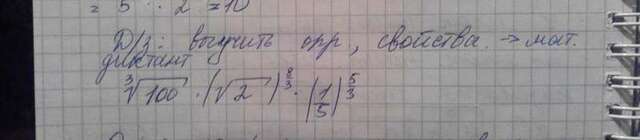 = 5 · 2 = 10
Д/з: выучить опр, свойства. → мат.
диктант
∛100 · (√2)^(8/3) · (1/5)^(5/3)